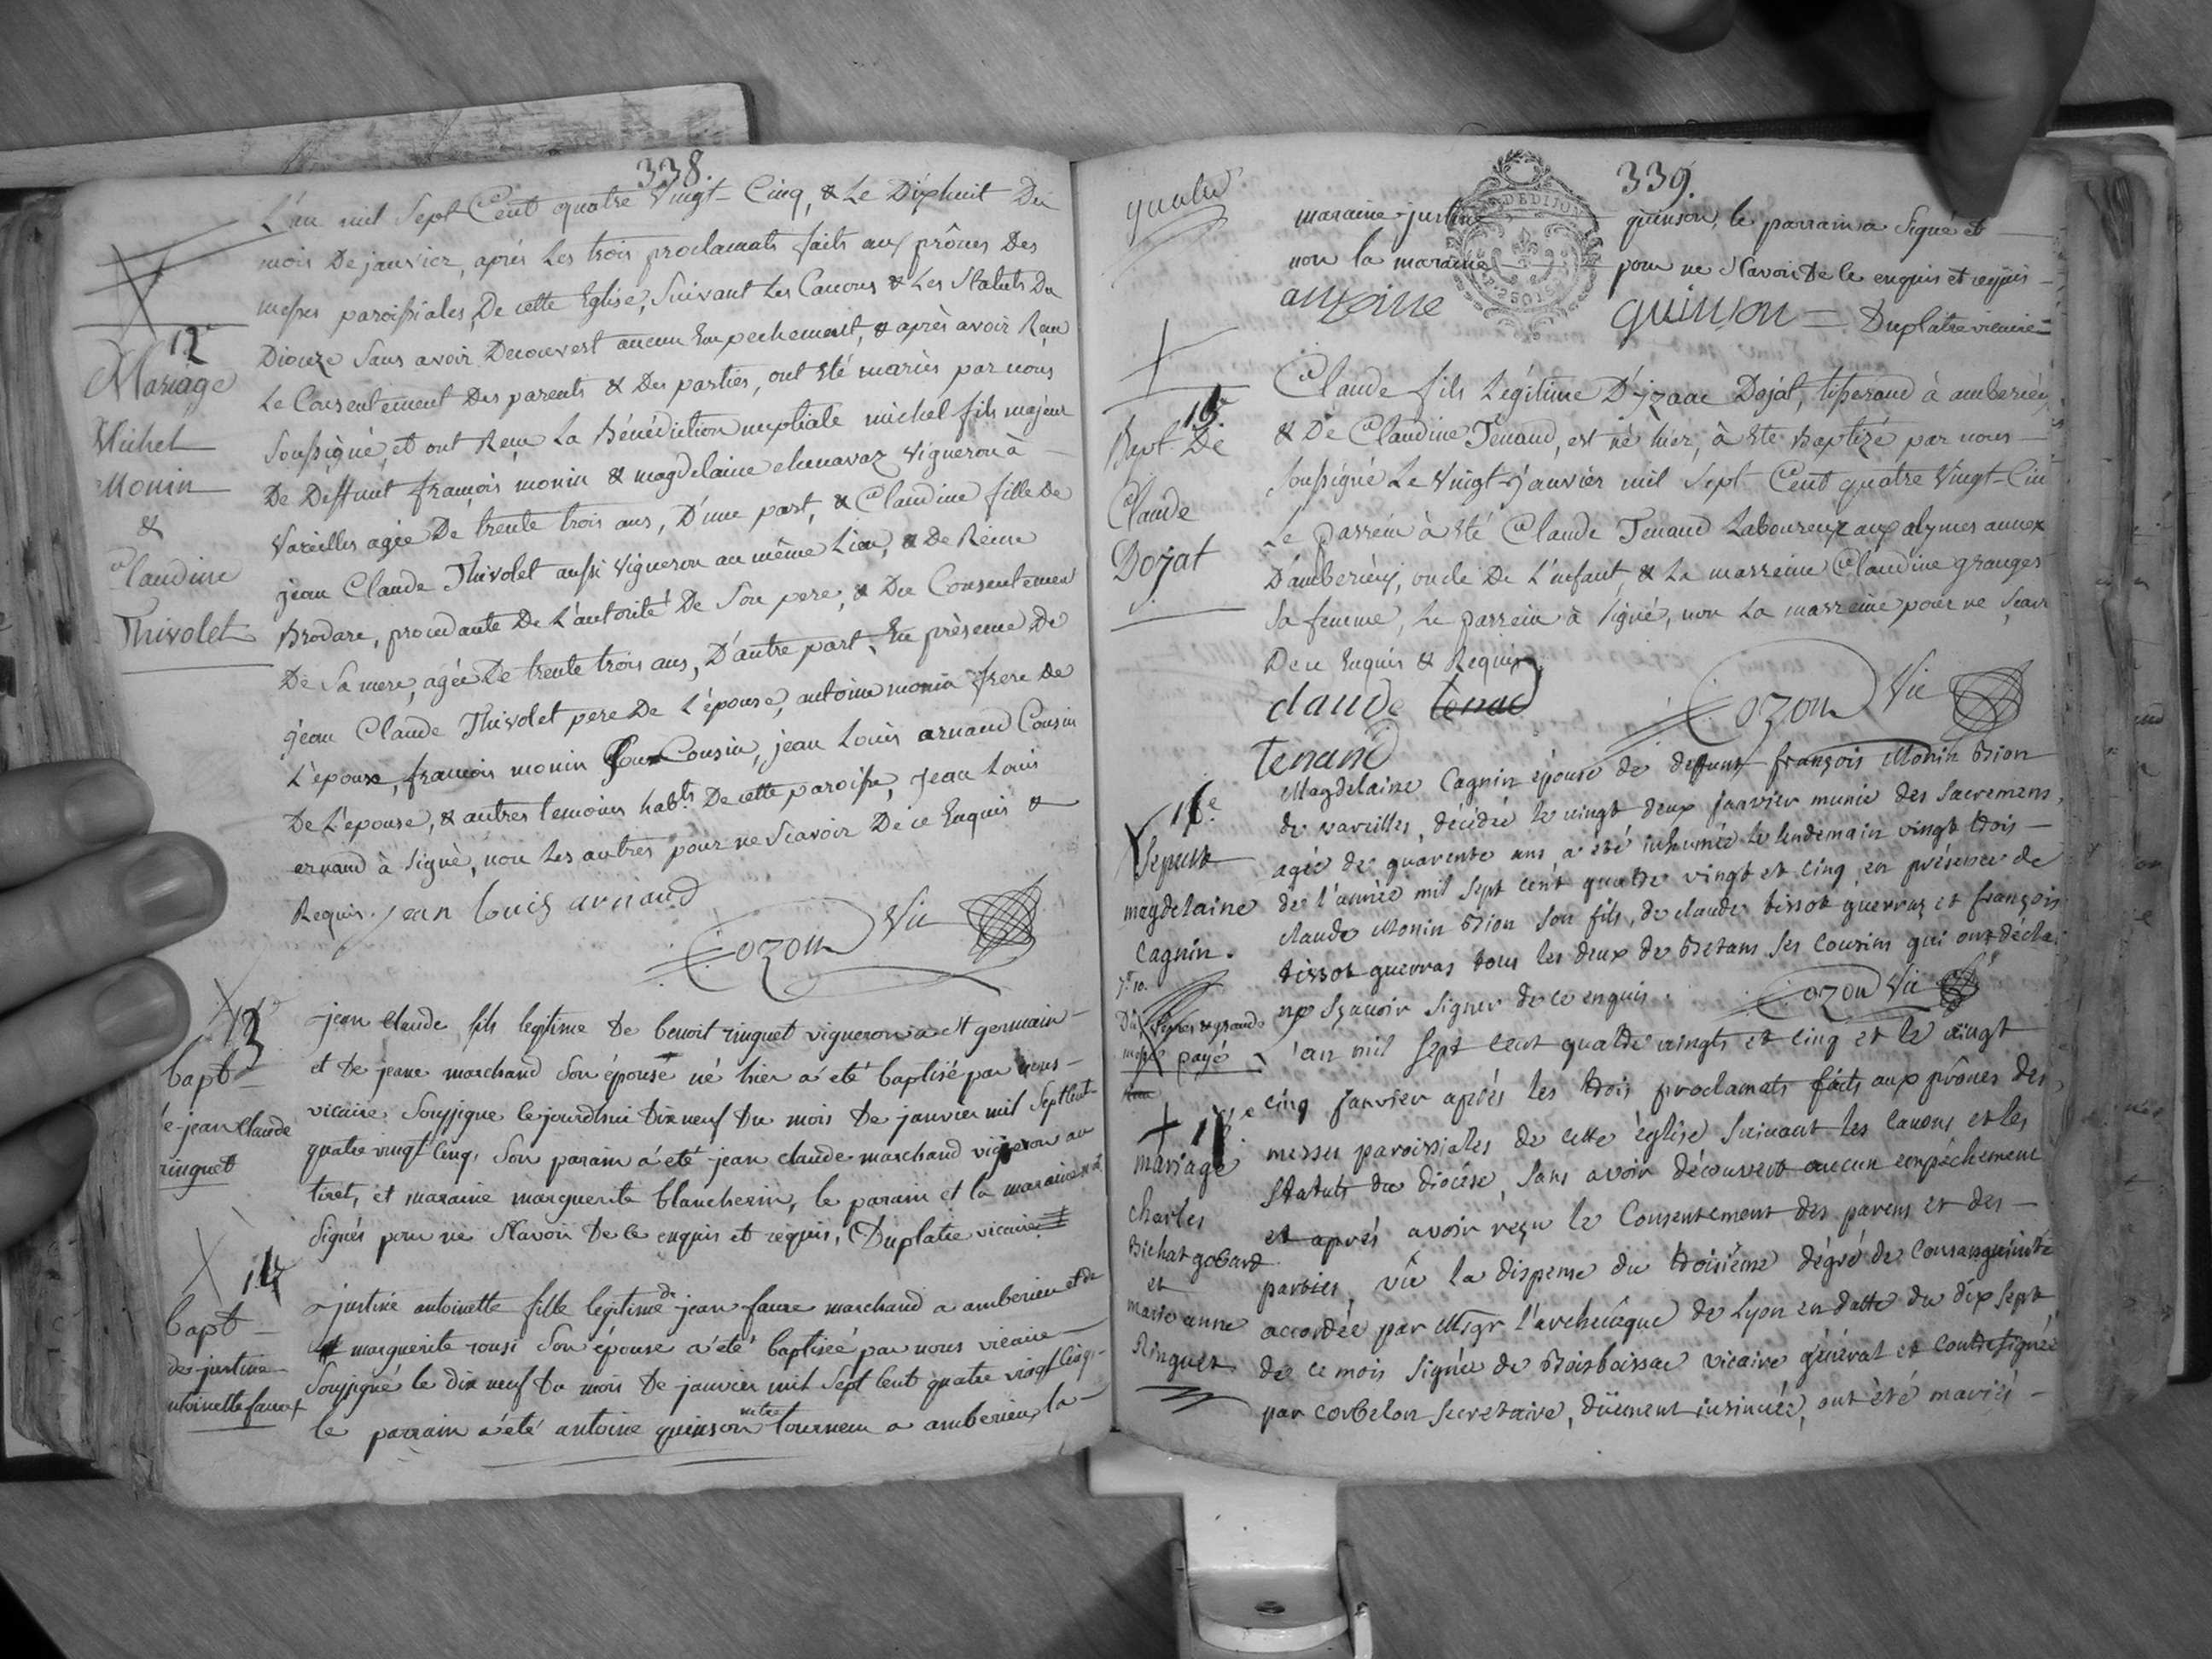 338.
L'an mil Sept Cent quatre Vingt-Cinq, & Le Dixhuit Du
mois De janvier, aprés Les trois proclamats faits aux prônes Des
messes paroissiales, De cette Eglise, Suivant Les Canons & Les Statuts Du
Dioceze Sans avoir Decouvert aucun Empechement, & après avoir Reçu
Le Consentement Des parents & Des parties, ont été mariés par nous
Soussigné, et ont Reçu La Bénédiction nuptiale michel fils majeur
De Deffunt françois monin & magdelaine chenavaz Vigneron à
Vareilles agée De trente trois ans, D'une part, & Claudine fille De
jean Claude Thivolet aussi Vigneron au même Lieu, & De Reine
Brodare, procedante De L'autorité De Son pere, & Du Consentement
De Sa mere, agée De trente trois ans, D'autre part, En présence De
jean Claude Thivolet pere De L'épouse, antoine monin frere De
L'épouse, françois monin Son Cousin, jean Louis arnaud Cousin
De L'epouse, & autres temoins habts De cette paroisse, jean Louis
arnaud à Signé, non Les autres pour ne Scavoir De ce Enquis &
Requis. jean louis arnaud
Cozon Vic
12e
Mariage
Michel
Monin
&
Claudine
Thivolet
13e
bapt
e-jean Claude
ringuet
jean claude fils legitime De benoit ringuet vigneron a st germain
et De jeane marchand Son épouse né hier a été baptisé par nous
vicaire Soussigne le jourdhui Dix neuf Du mois De janvier mil Sept Cent
quatre vingt Cinq, Son parain a été jean claude marchand vigneron au
tiret, et maraine marguerite blancherin, le parain et la maraine n'ont
Signés pour ne Scavoir De ce enquis et requis, Duplatre vicaire
14
bapt
de justine
antoinette faure
justine antoinette fille legitime de jean faure marchand a amberieu et de
marguerite rousi Son épouse a été baptisée par nous vicaire
Soussigné le dix neuf Du mois De janvier mil Sept Cent quatre vingt Cinq,
le parrain a été antoine quinson tourneur a amberieu, la
339.
maraine justine quinson, le parrain a Signé et
non la maraine pour ne Scavoir De ce enquis et requis
antoine quinson Duplatre vicaire
15.
Bapt. De
Claude
Dojat
Claude fils Légitime D'jzaac Dojat, tisserand à amberiéu
& De Claudine Tenand, est né hier, à été Baptizé par nous
soussigné Le Vingt janvier mil Sept Cent quatre Vingt-Cin
Le parrein à été Claude Tenand Laboureur aux alymes annex
D'amberieu, oncle De L'enfant & La marreine Claudine granges
Sa femme, Le parrein à Signé, non La marreine pour ne Scavr
De ce Enquis & Requis
claude tenad
tenand
Cozon Vic
16e
Sepult
magdelaine
Cagnin.
payé
Magdelaine Cagnin épouse de deffunt françois Monin Bion
de vareilles, décédée le vingt deux janvier munie des Sacremens,
agée de quarente ans a été inhumée le lendemain vingt trois
de l'année mil Sept cent quatre vingt et cinq en présence de
claude Monin Bion Son fils, de claude tissot guerraz et françois
tissot guerras tous les deux de Betans Ses Cousins qui ont décla
ne Sçavoir Signer de ce enquis.
Cozon Vic
mariage
charles
Bichat gobard
et
marie anne
Ringuet
l'an mil Sept cent quatre vingts et cinq et le vingt
cinq janvier aprés les trois proclamats faits aux prônes des
messes paroissiales de cette église Suivant les canons et les
Statuts du diocése, Sans avoir découvert aucun empéchement
et aprés avoir reçu le Consentement des parens et des
parties, vû la dispense du troisième dégré de Consanguinité
accordée par Msgr. l'archevêque de Lyon en datte du dix Sept
de ce mois Signée de Boisboissac vicaire général et contresignée
par corbelon Secretaire, düement insinuée, ont été mariés